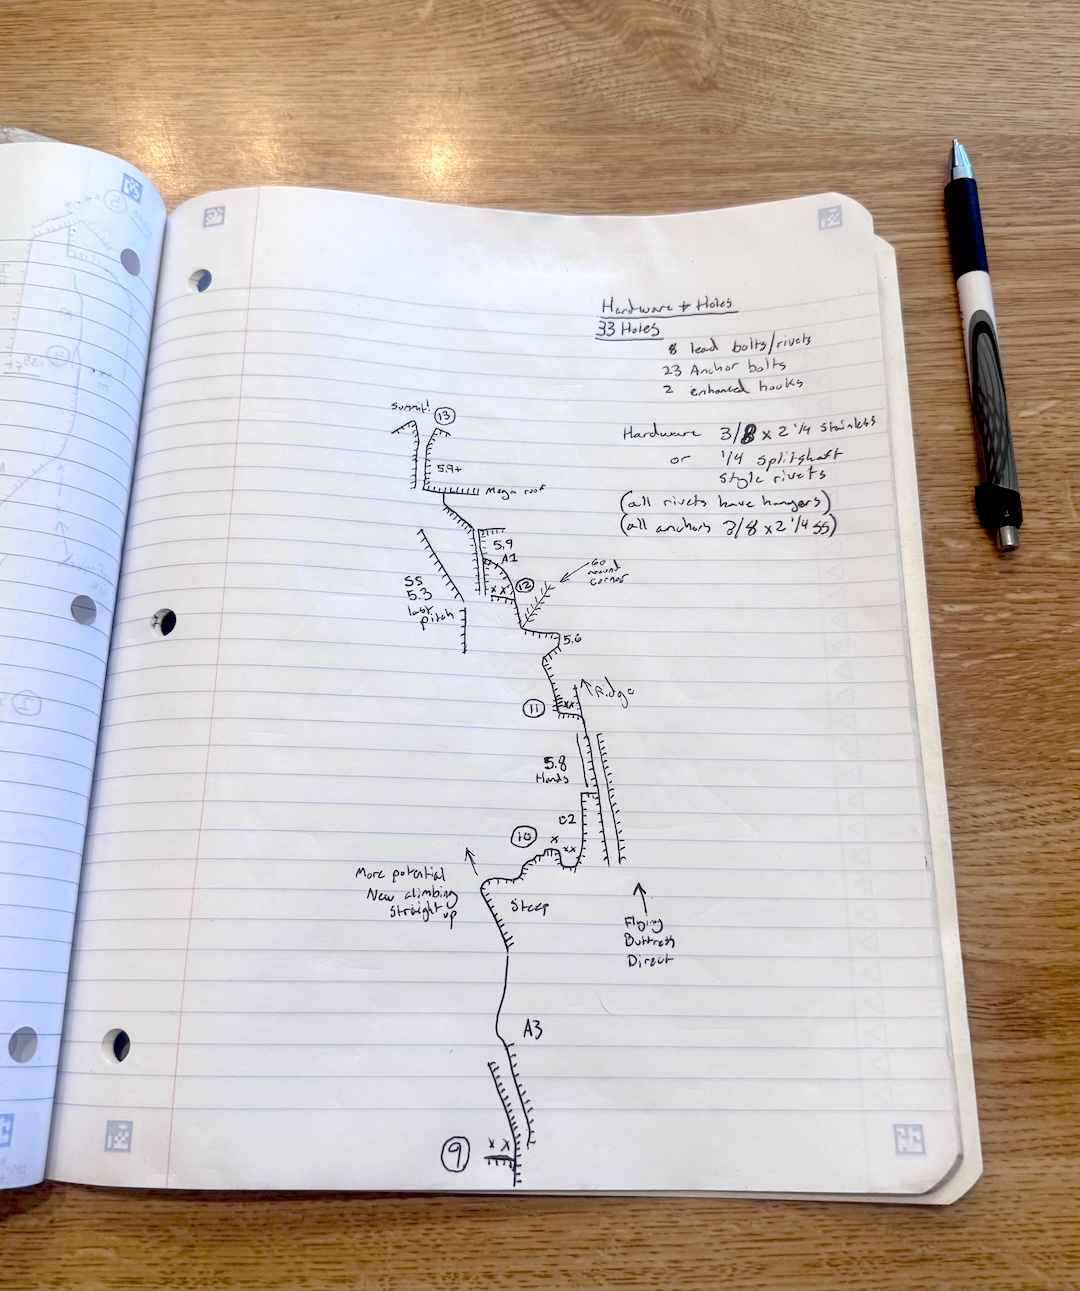 Hardware + Holes
33 Holes
8 lead bolts/rivets
23 Anchor bolts
2 enhanced hooks
Hardware 3/8 x 2 1/4 Stainless
or 1/4 splitshaft
style rivets
(all rivets have hangers)
(all anchors 3/8 x 2 1/4 SS)
Summit!
13
5.9+
Mega roof
5.9
A1
xx
12
Go
around
corner
5.3
last
pitch
5.6
Ridge
11
xx
5.8
Hands
C2
10
x
xx
More potential
New climbing
Straight up
Steep
Flying
Buttress
Direct
A3
9
x x